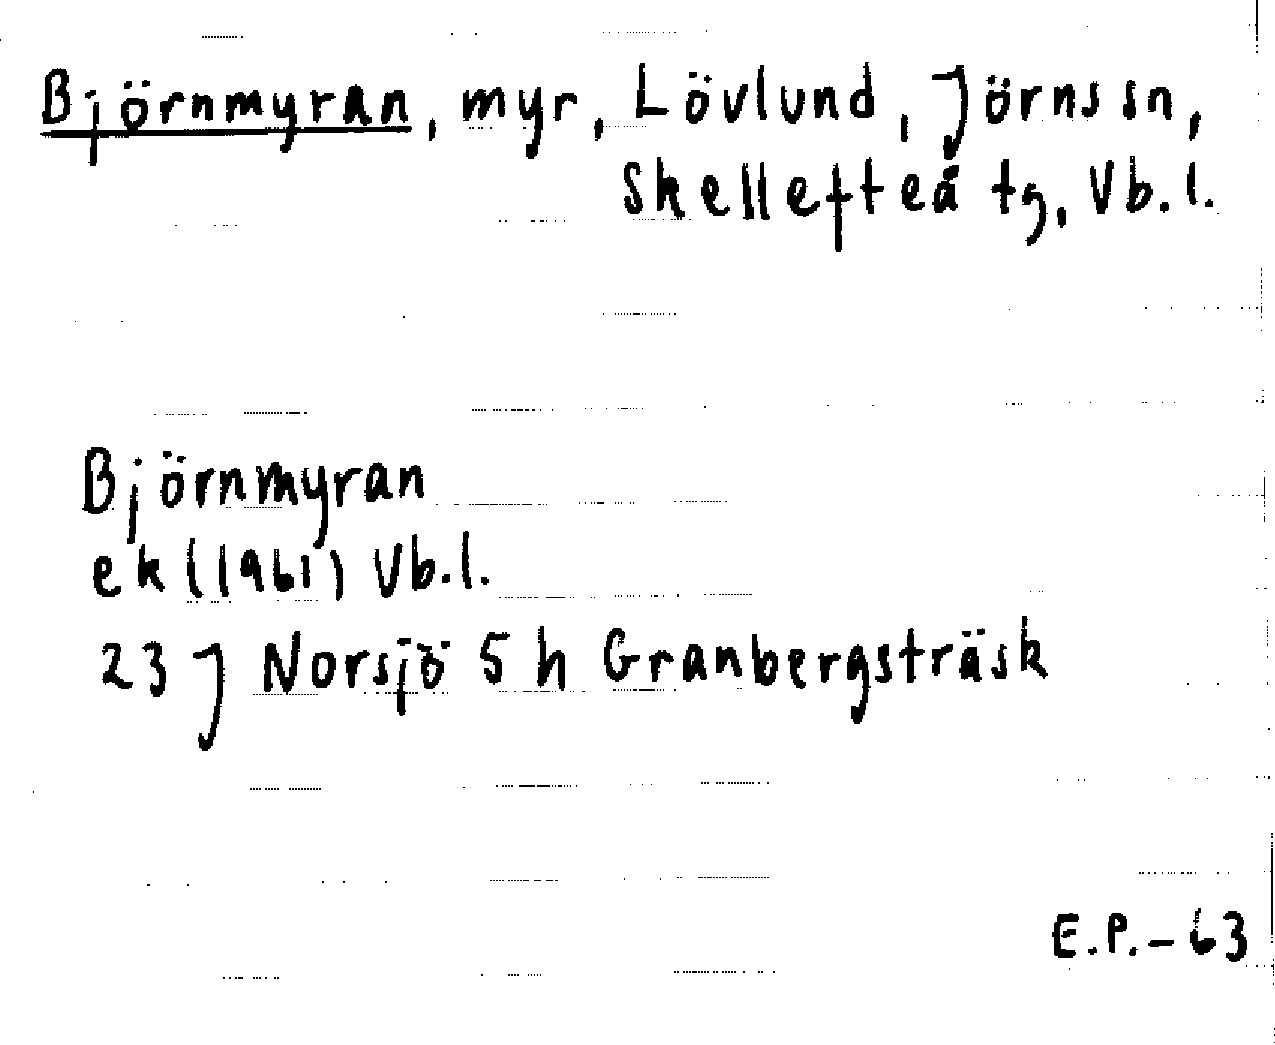 Björnmyran, myr, Lövlund, Jörns sn,
Skellefteå tg, Vb. l.
Björnmyran
ek (1961) Vb. l.
23 J Norsjö 5 h Granbergsträsk
E.P. - 63